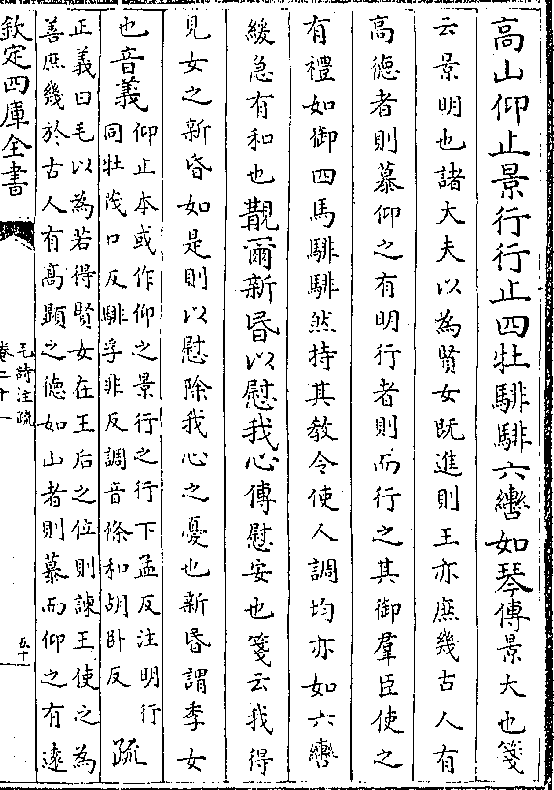 高山仰止景行行止四牡騑騑六轡如琴傳景大也箋
云景明也諸大夫以為賢女既進則王亦庶幾古人有
高德者則慕仰之有明行者則而行之其御羣臣使之
有禮如御四馬騑騑然持其教令使人調均亦如六轡
緩急有和也覯爾新昏以慰我心傳慰安也箋云我得
見女之新昏如是則以慰除我心之憂也新昏謂季女
也音義仰止本或作仰之景行之行下孟反注明行
同牡茂口反騑孚非反調音條和胡卧反疏
正義曰毛以為若得賢女在王后之位則諫王使之為
善庶幾於古人有高顯之德如山者則慕而仰之有遠
欽定四庫全書
毛詩注疏
卷二十一
五十